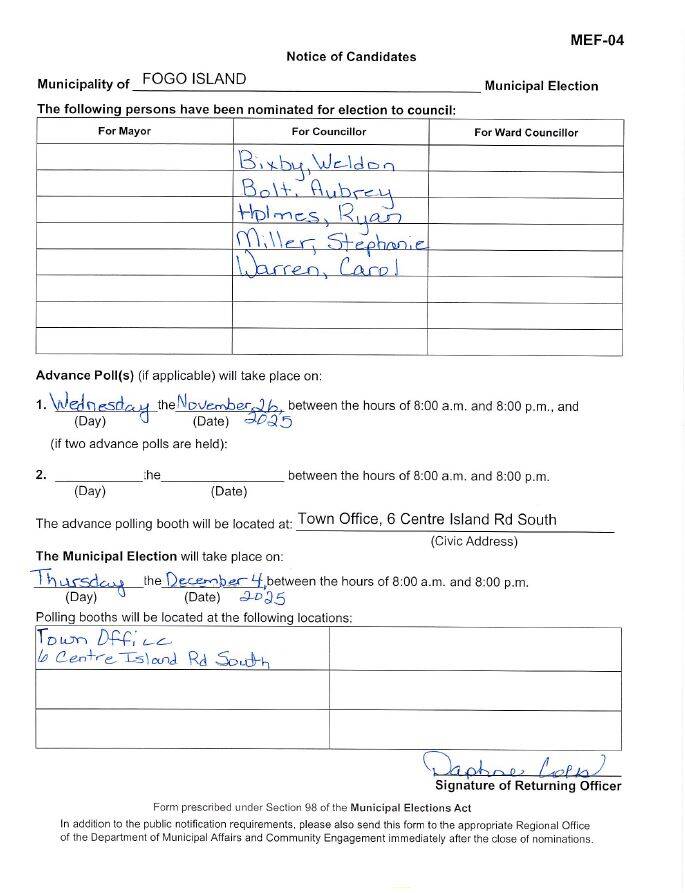 MEF-04
Notice of Candidates
Municipality of FOGO ISLAND Municipal Election
The following persons have been nominated for election to council:
For Mayor For Councillor For Ward Councillor
Bixby, Weldon
Bolt, Aubrey
Holmes, Ryan
Miller, Stephanie
Warren, Carol
Advance Poll(s) (if applicable) will take place on:
1. Wednesday the November 26, between the hours of 8:00 a.m. and 8:00 p.m., and
(Day) (Date) 2025
(if two advance polls are held):
2. :he between the hours of 8:00 a.m. and 8:00 p.m.
(Day) (Date)
The advance polling booth will be located at: Town Office, 6 Centre Island Rd South
(Civic Address)
The Municipal Election will take place on:
Thursday the December 4, between the hours of 8:00 a.m. and 8:00 p.m.
(Day) (Date) 2025
Polling booths will be located at the following locations:
Town Office
6 Centre Island Rd South
Daphne
Signature of Returning Officer
Form prescribed under Section 98 of the Municipal Elections Act
In addition to the public notification requirements, please also send this form to the appropriate Regional Office
of the Department of Municipal Affairs and Community Engagement immediately after the close of nominations.